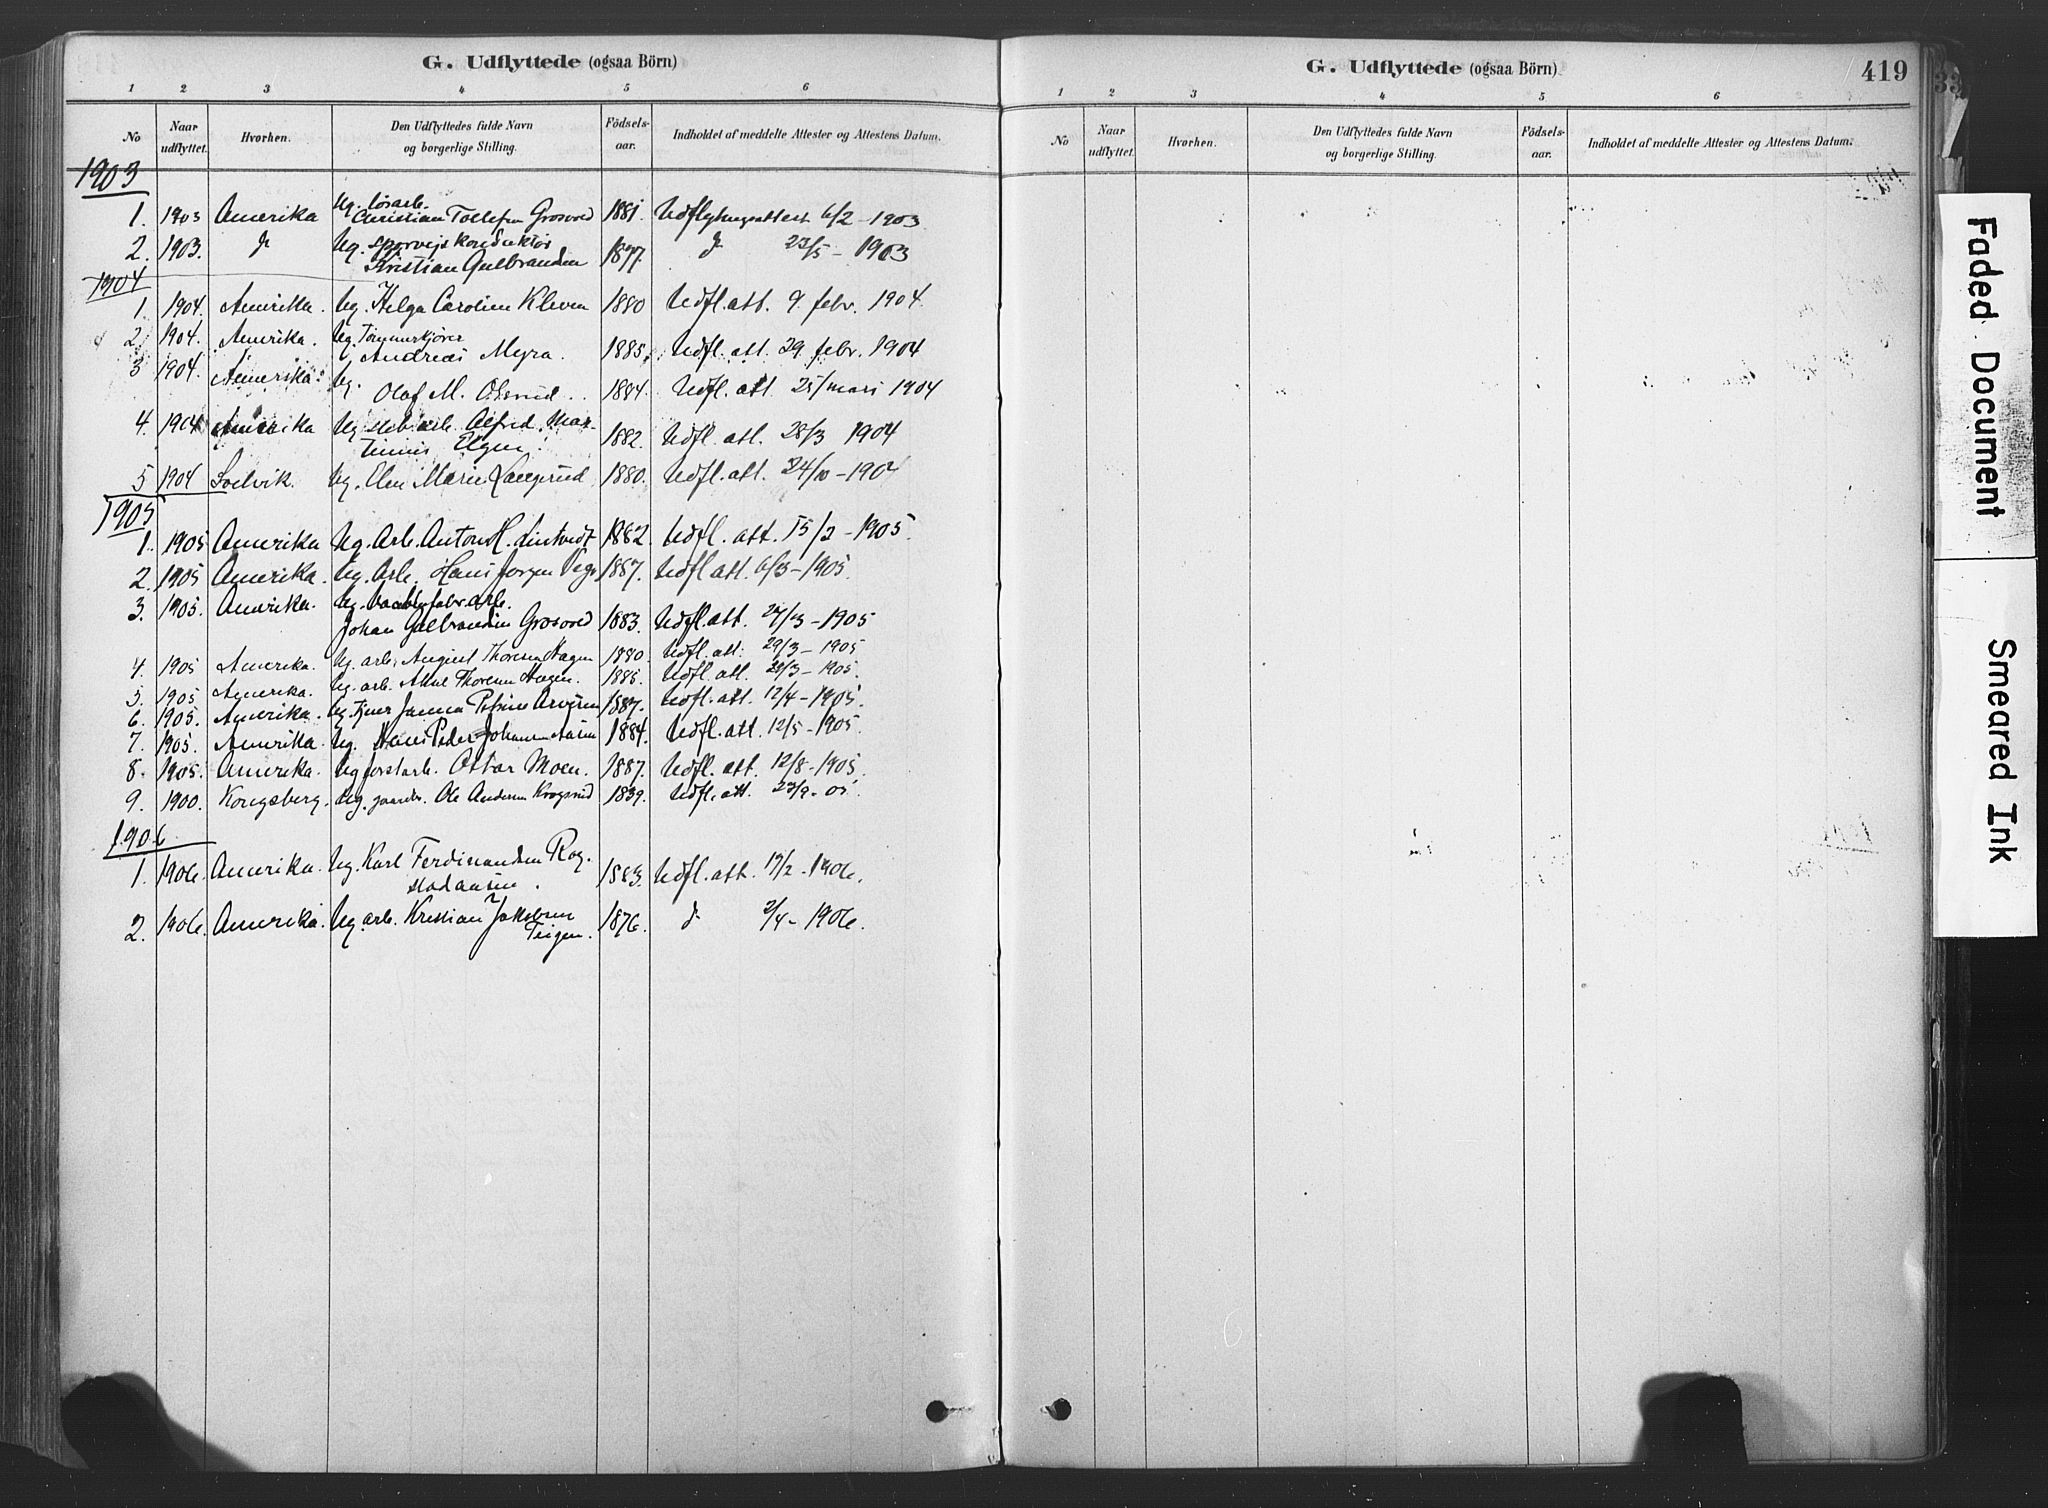 G. Udflyttede (ogsaa Börn)
1 2 3 4 5 6
No Naar udflyttet. Hvorhen. Den Udflyttedes fulde Navn og borgerlige Stilling. Födsels-aar. Indholdet af meddelte Attester og Attestens Datum.
1903
1. 1903 Amerika Ug. løsarb. Christian Tollefsen Grosvold 1881. Udflytngsattest 6/2 - 1903
2. 1903. Ug. sporvejskonduktør Kristian Gulbrandsen 1877. 23/5 - 1903
1904
1. 1904. Amerika. Ug. Helga Caroline Kleven 1880 Udfl. att. 9. febr. 1904.
2. 1904. Amerika. Ug. Tømmerkjører Andreas Myra. 1885. Udfl. att. 29. febr. 1904
3 1904. Amerika. Ug. Olaf M. 1884. Udfl. att. 25/mars 1904
4. 1904 Amerika Ug. arb. Alfred Mar-tinius 1882. Udfl. att. 28/3 1904
5 1904 Svelvik. Ug. Marie Langrud 1880. Udfl. att. 24/10 - 1904
1905
1. 1905 Amerika Ug. Arb. Anton H. Lintvedt 1882. Udfl. att. 15/2 - 1905.
2. 1905 Amerika. Ug. Arb. Hans Jørgen 1887. Udfl att. 6/3 - 1905.
3. 1905. Amerika. Ug. Johan Gulbrandsen Grosvold 1883. Udfl. att. 27/3 - 1905
4. 1905 Amerika. Ug. arb. August Thoresen Hagen 1880. Udfl. att. 29/3 - 1905
5. 1905 Amerika. Ug. arb. Thoresen Hagen. 1885. Udfl. att. 29/3 - 1905.
6. 1905. Amerika. Ug. Petrine 1887. Udfl. att. 12/4 - 1905.
7. 1905. Amerika. Ug. Hans Peder Johansen Aasen 1884. Udfl. att. 12/5 - 1905.
8. 1905. Amerika. Ug forstarb. Ottar Moen. 1887. Udfl. att. 12/8 - 1905.
9. 1900. Kongsberg. Ug. Ole Andersen 1839. Udfl. att. 23/9 - 05.
1906
1. 1906. Amerika. Ug. Karl Ferdinandsen Rog-stadaasen. 1883. Udfl. att. 17/2 - 1906.
2. 1906. Amerika. Ug. arb. Kristian Jakobsen Teigen. 1876. 2/4 - 1906.
G. Udflyttede (ogsaa Börn)
419
1 2 3 4 5 6
No Naar udflyttet. Hvorhen. Den Udflyttedes fulde Navn og borgerlige Stilling. Födsels-aar. Indholdet af meddelte Attester og Attestens Datum.
Faded Document
Smeared Ink